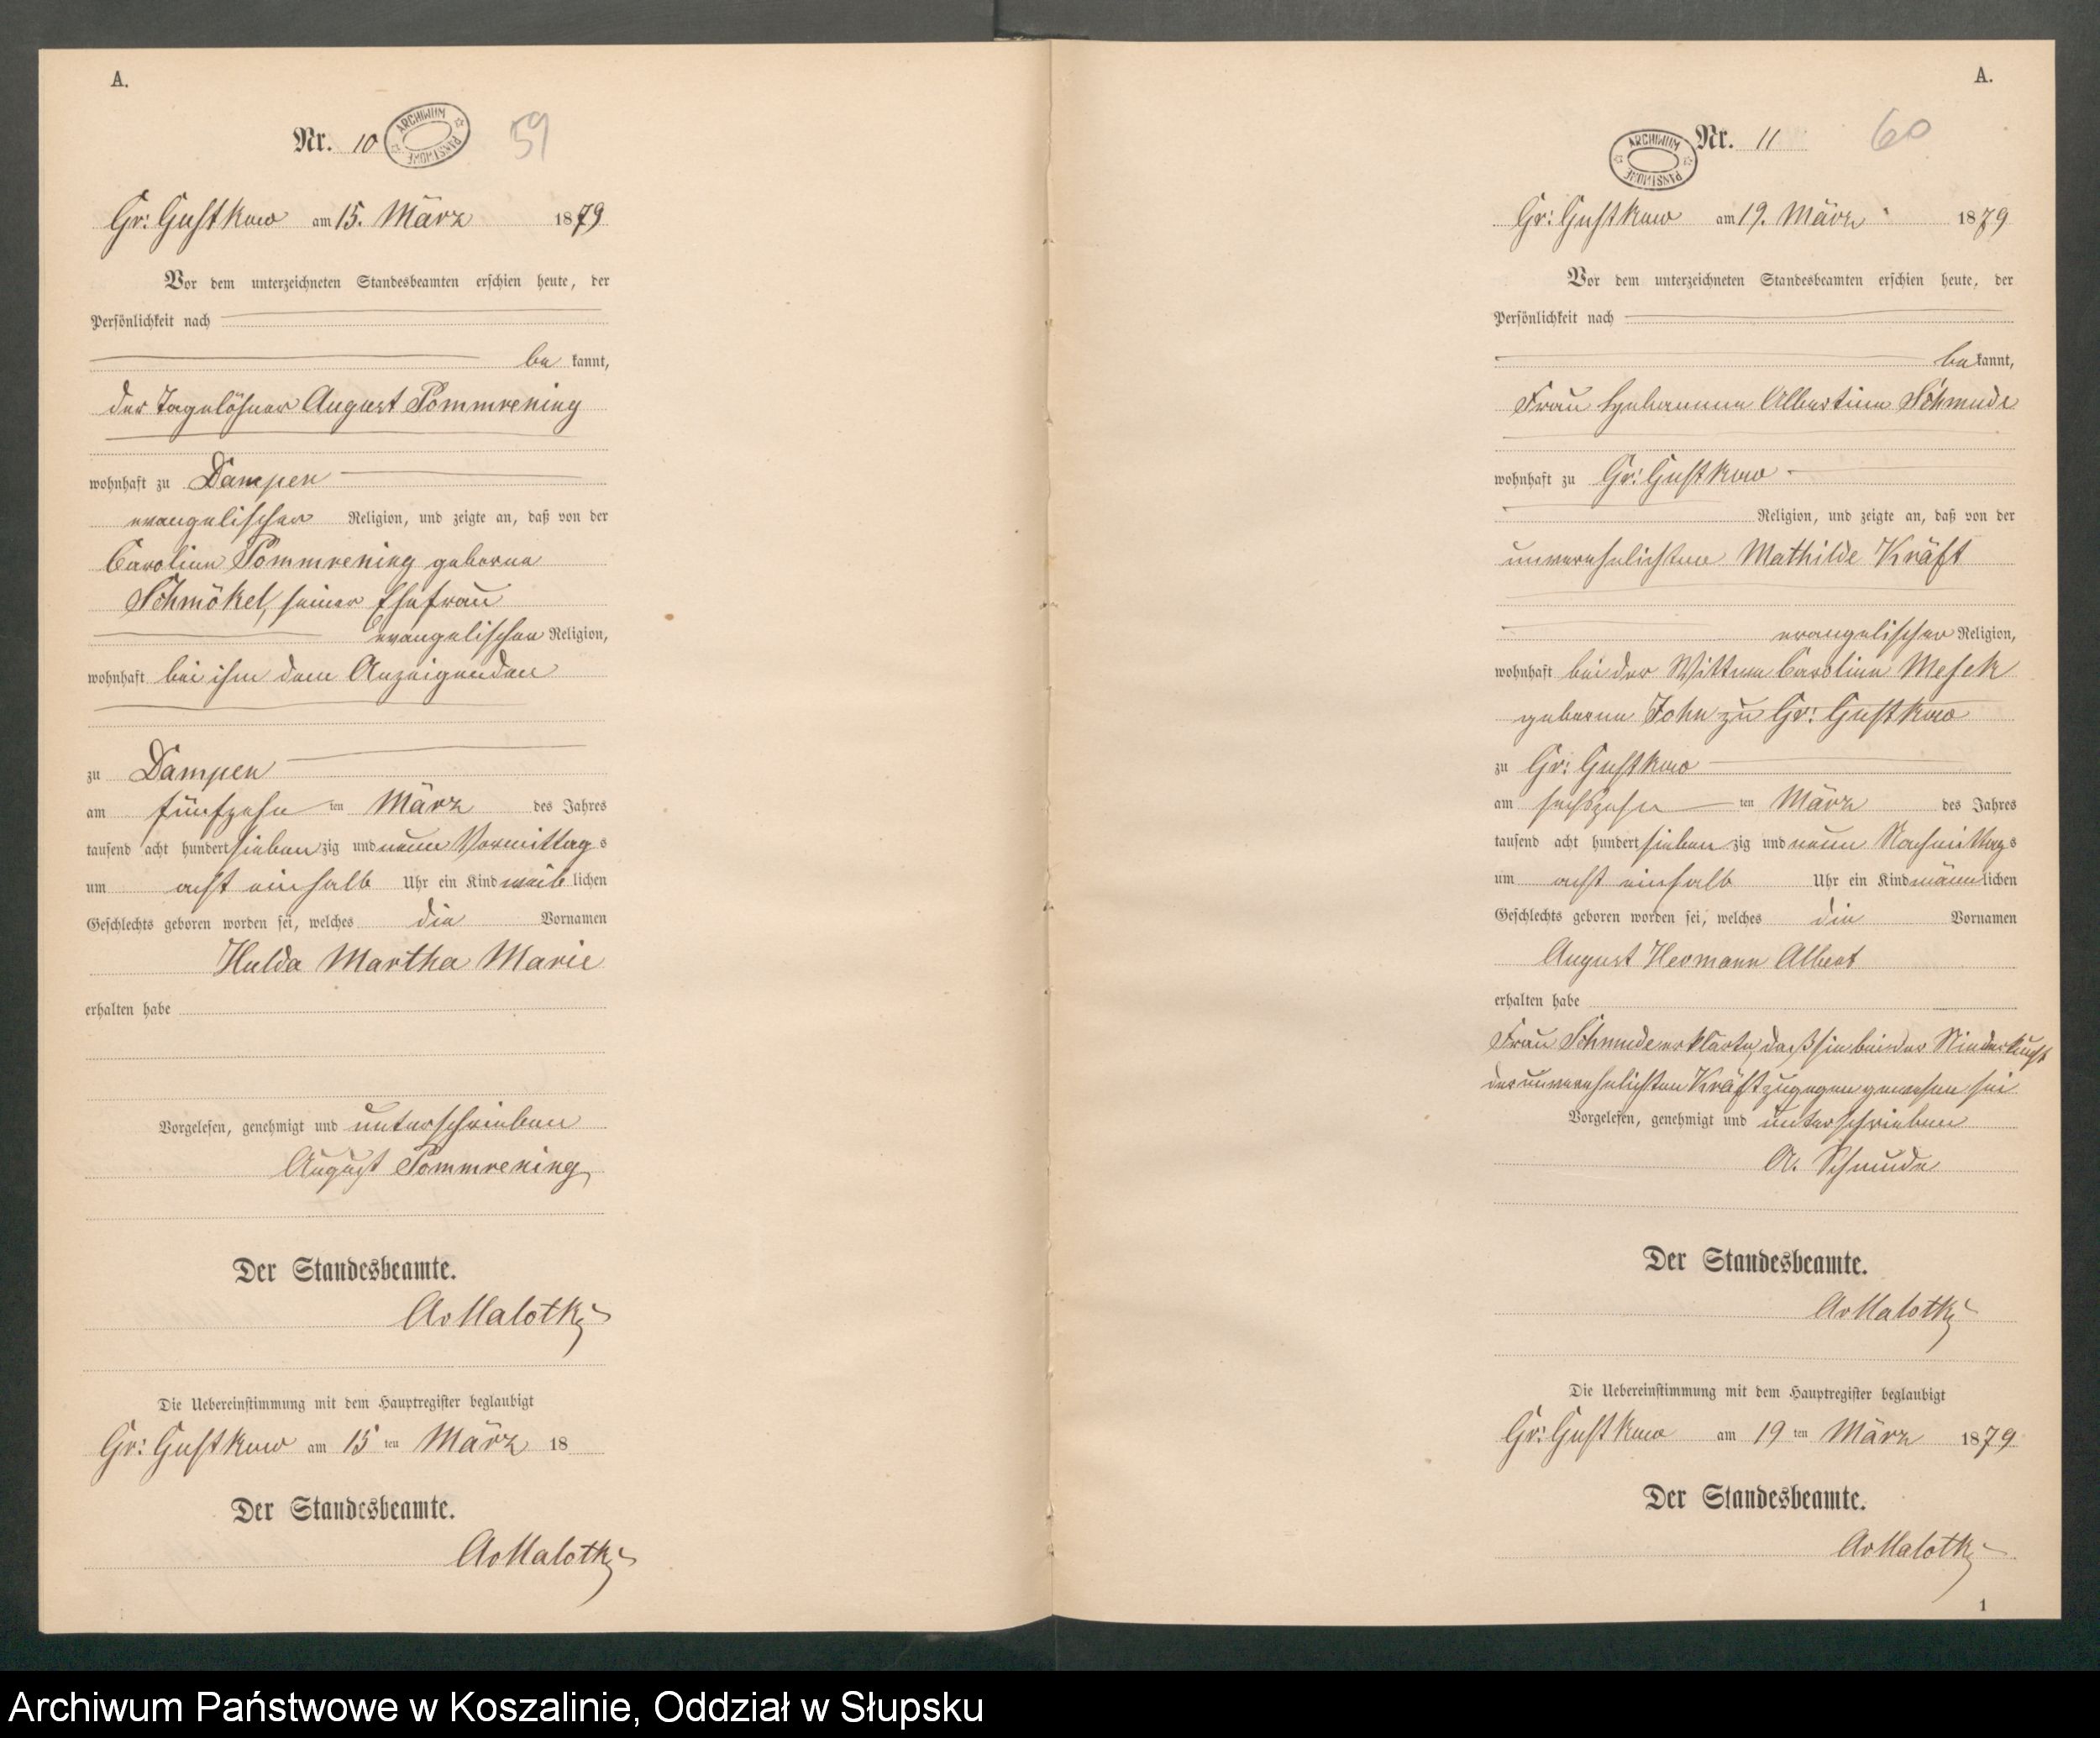 A.
Nr. 10
ARCHIWUM PAŃSTWOWE
59
Gr: Gustkow am 15. März 1879
Vor dem unterzeichneten Standesbeamten erschien heute, der
Persönlichkeit nach
be kannt,
der Tagelöhner August Pommrening
wohnhaft zu Dampen
evangelischer Religion, und zeigte an, daß von der
Caroline Pommrening geborne
Schmökel, seiner Ehefrau
evangelischer Religion,
wohnhaft bei ihm dem Anzeigenden
zu Dampen
am fünfzehn ten März des Jahres
tausend acht hundert sieben zig und neun Vormittag s
um acht einhalb Uhr ein Kind weib lichen
Geschlechts geboren worden sei, welches die Vornamen
Hulda Martha Marie
erhalten habe
Vorgelesen, genehmigt und unterschrieben
August Pommrening
Der Standesbeamte.
AvMalotky
Die Uebereinstimmung mit dem Hauptregister beglaubigt
Gr: Gustkow am 15 ten März 18
Der Standesbeamte.
AvMalotky
A.
ARCHIWUM PAŃSTWOWE
Nr. 11
60
Gr: Gustkow am 19. März 1879
Vor dem unterzeichneten Standesbeamten erschien heute, der
Persönlichkeit nach
be kannt,
Frau Hebamme Albertine Schmude
wohnhaft zu Gr: Gustkow
Religion, und zeigte an, daß von der
unverehelichten Mathilde Kräft
evangelischer Religion,
wohnhaft bei der Wittwe Caroline Mesek
geborne John zu Gr: Gustkow
zu Gr: Gustkow
am sechszehn ten März des Jahres
tausend acht hundert sieben zig und neun Nachmittag s
um acht einhalb Uhr ein Kind männ lichen
Geschlechts geboren worden sei, welches die Vornamen
August Hermann Albert
erhalten habe
Frau Schmude erklärte, daß sie bei der Niederkunft
der unverehelichten Kräft zugegen gewesen sei
Vorgelesen, genehmigt und unterschrieben
A. Schmude
Der Standesbeamte.
AvMalotky
Die Uebereinstimmung mit dem Hauptregister beglaubigt
Gr: Gustkow am 19 ten März 1879
Der Standesbeamte.
AvMalotky
1
Archiwum Państwowe w Koszalinie, Oddział w Słupsku